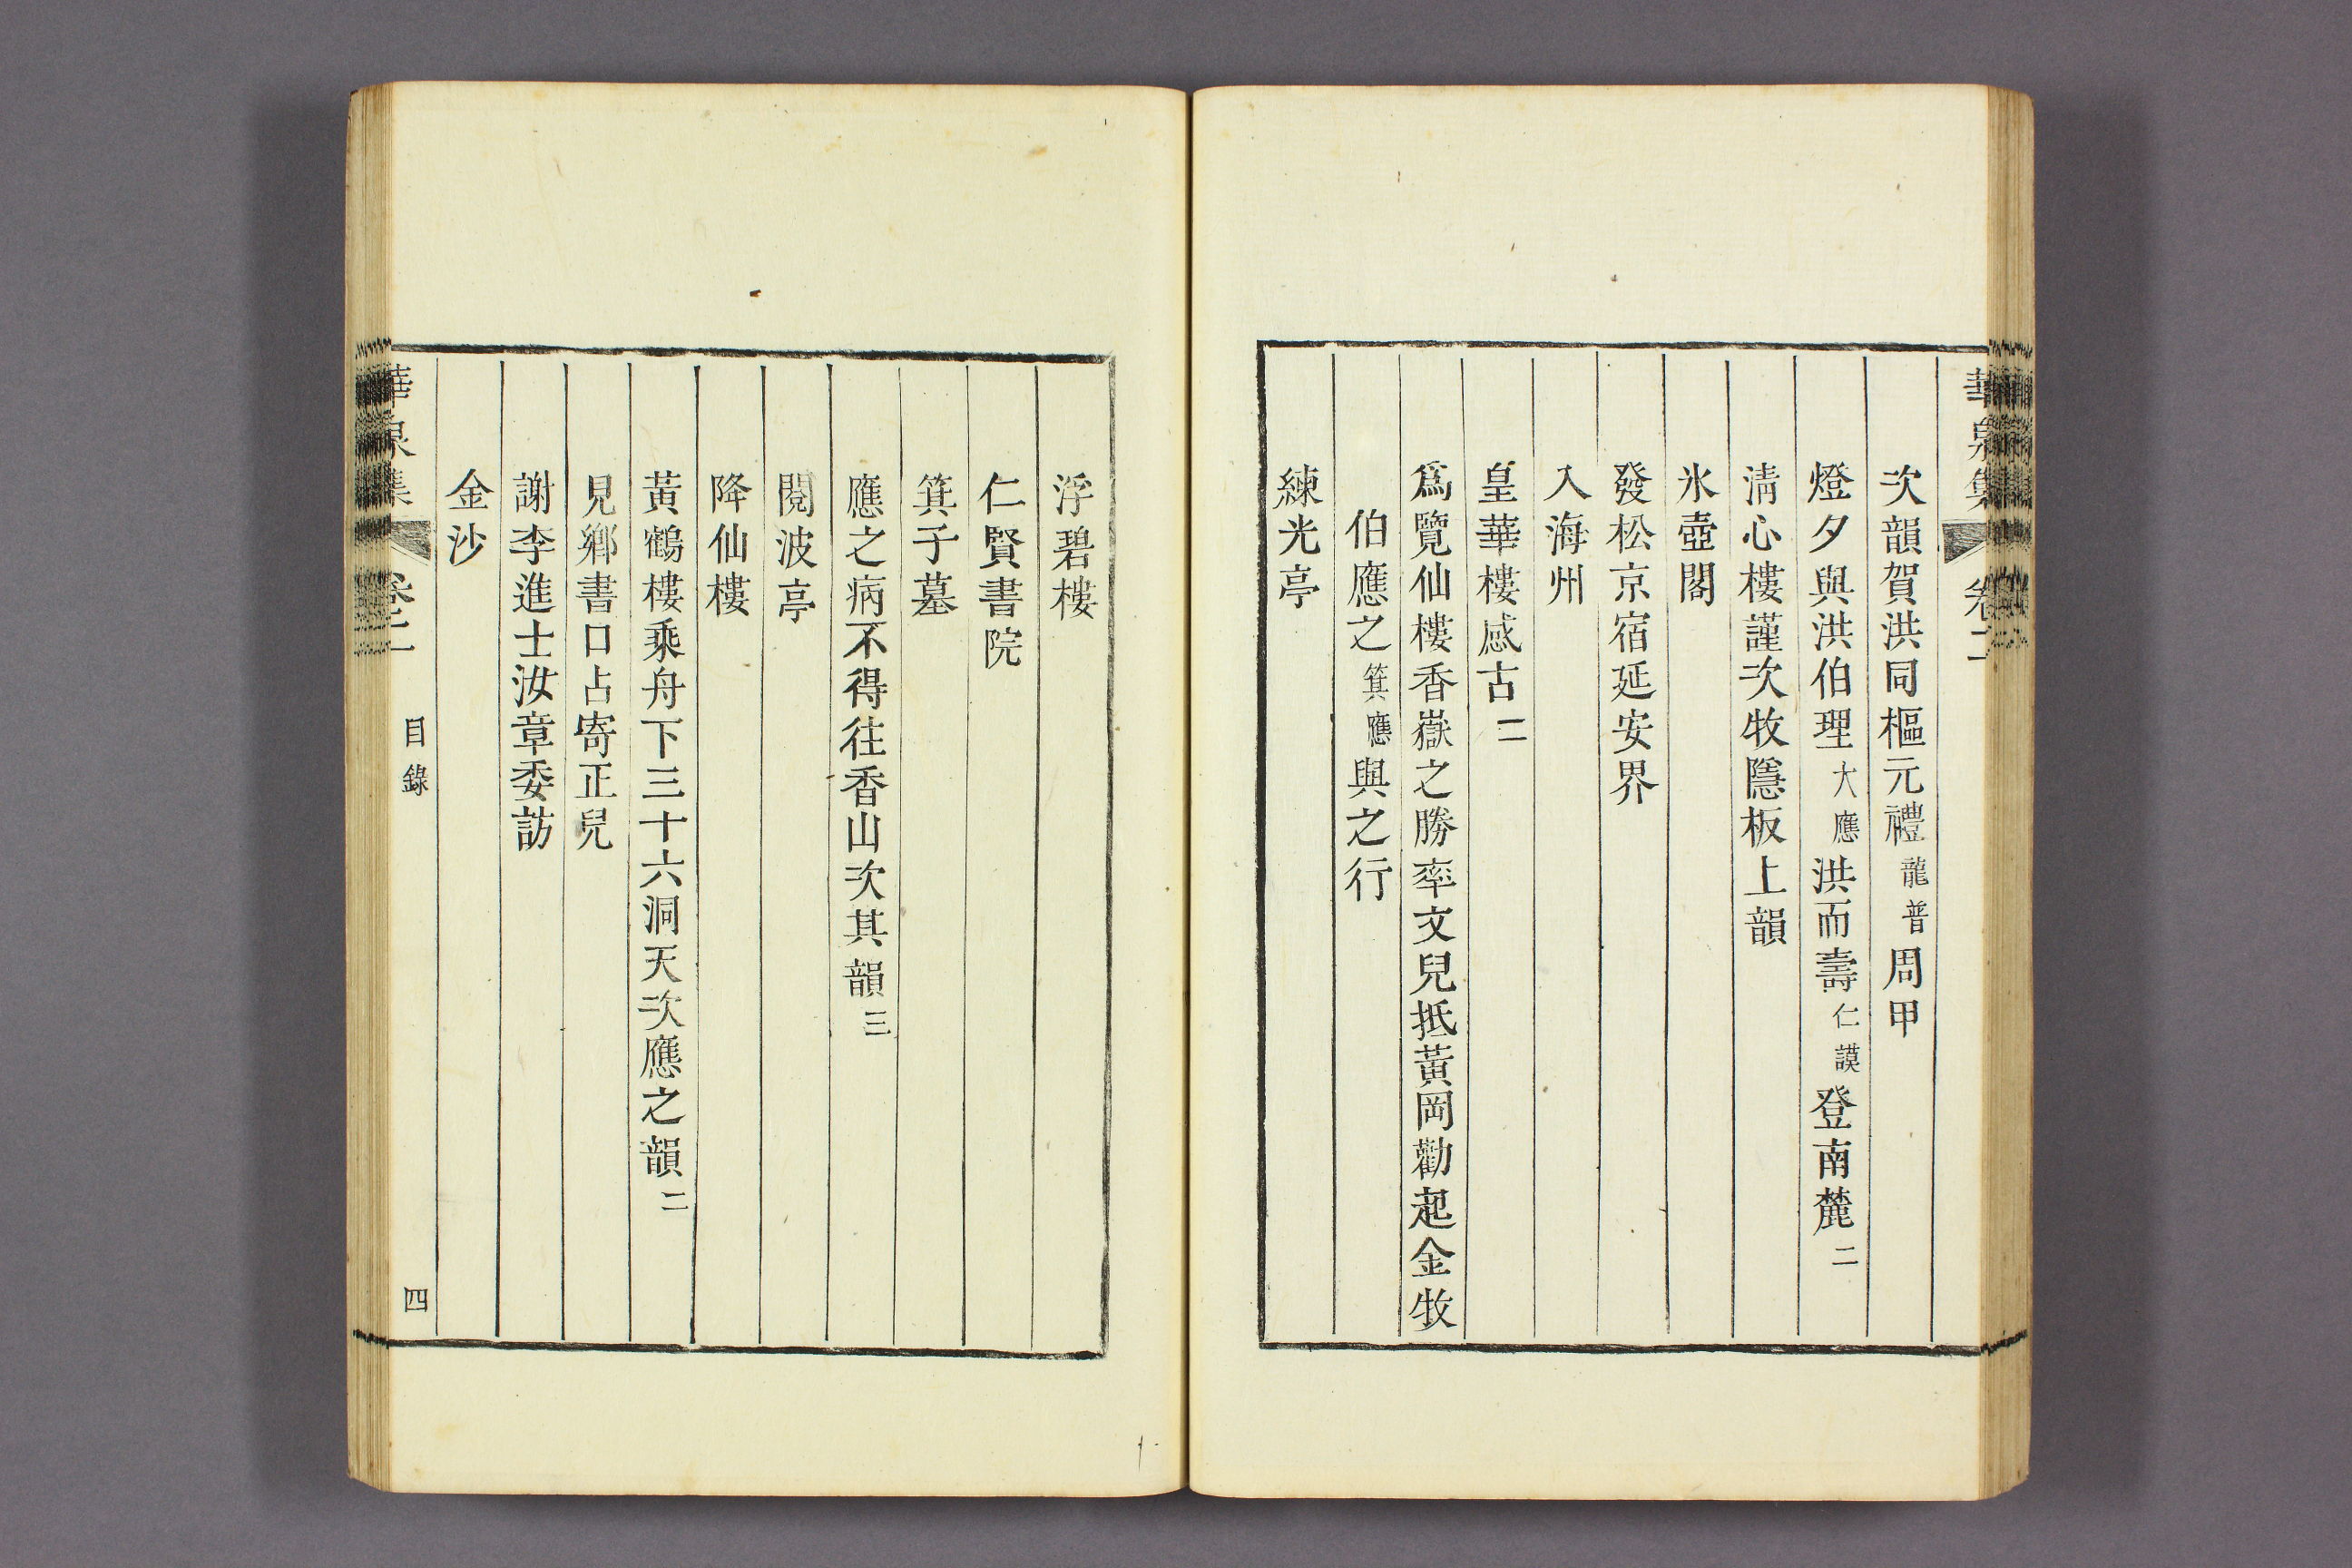 華泉集 卷二
次韻賀洪同樞元禮龍普周甲
燈夕與洪伯理大應洪而壽仁謨登南麓二
淸心樓謹次牧隱板上韻
氷壺閣
發松京宿延安界
入海州
皇華樓感古二
爲覽仙樓香嶽之勝率文兒抵黃岡勸起金牧
伯應之箕應與之行
練光亭
浮碧樓
仁賢書院
箕子墓
應之病不得往香山次其韻三
閱波亭
降仙樓
黃鶴樓乘舟下三十六洞天次應之韻二
見鄕書口占寄正兒
謝李進士汝章委訪
金沙
華泉集 卷二 目錄 四